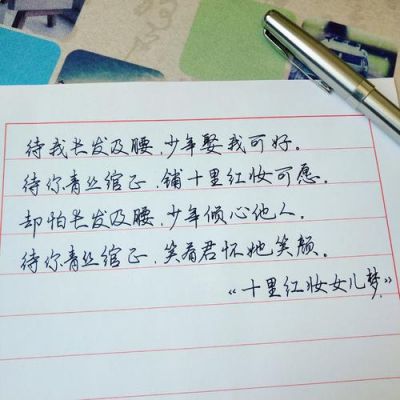 待我长发及腰,少年娶我可好。
待你青丝绾正,铺十里红妆可愿。
却怕长发及腰,少年倾心他人。
待你青丝绾正,笑看君怀她笑颜。
“十里红妆女儿梦”